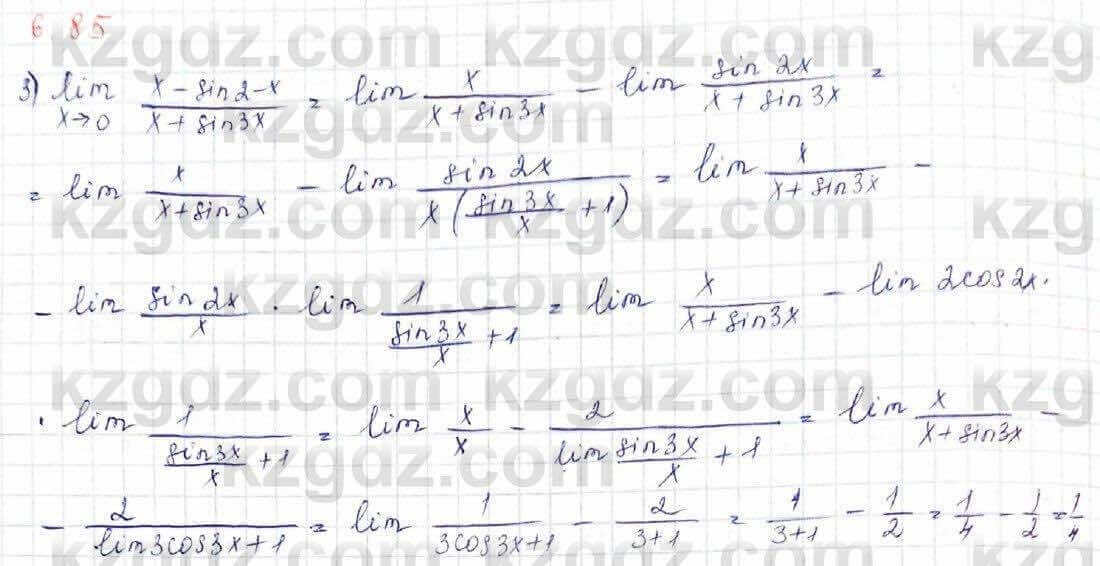 6 85
3) lim x→0 (x - sin2-x)/(x + sin3x) = lim x/(x + sin3x) - lim sin 2x/(x + sin3x) =
= lim x/(x+sin3x) - lim sin 2x/(x(sin 3x/x + 1)) = lim x/(x+sin3x) -
- lim sin 2x/x · lim 1/(sin3x/x + 1) = lim x/(x+sin3x) - lin 2cos2x·
· lim 1/(sin3x/x + 1) = lim x/x - 2/(lim sin3x/x + 1) = lim x/(x+sin3x) -
- 2/(lim3cos3x+1) = lim 1/(3cos3x+1) - 2/(3+1) = 1/(3+1) - 1/2 = 1/4 - 1/2 = 1/4
kzgdz.com